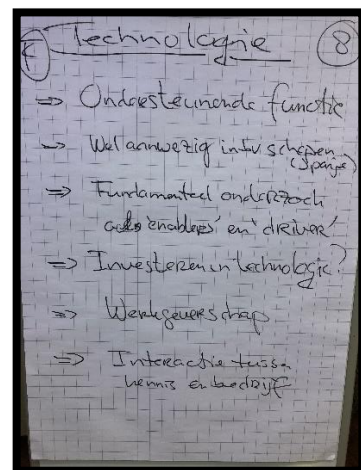 F Technologie 8
=> Ondersteunende functie
=> Wel aanwezig in tv schepen
(Spanje)
=> Fundamenteel onderzoek
als 'enablers' en 'driver'
=> Investeren in technologie?
=> Werkgeverschap
=> Interactie tussen
kennis en bedrijf